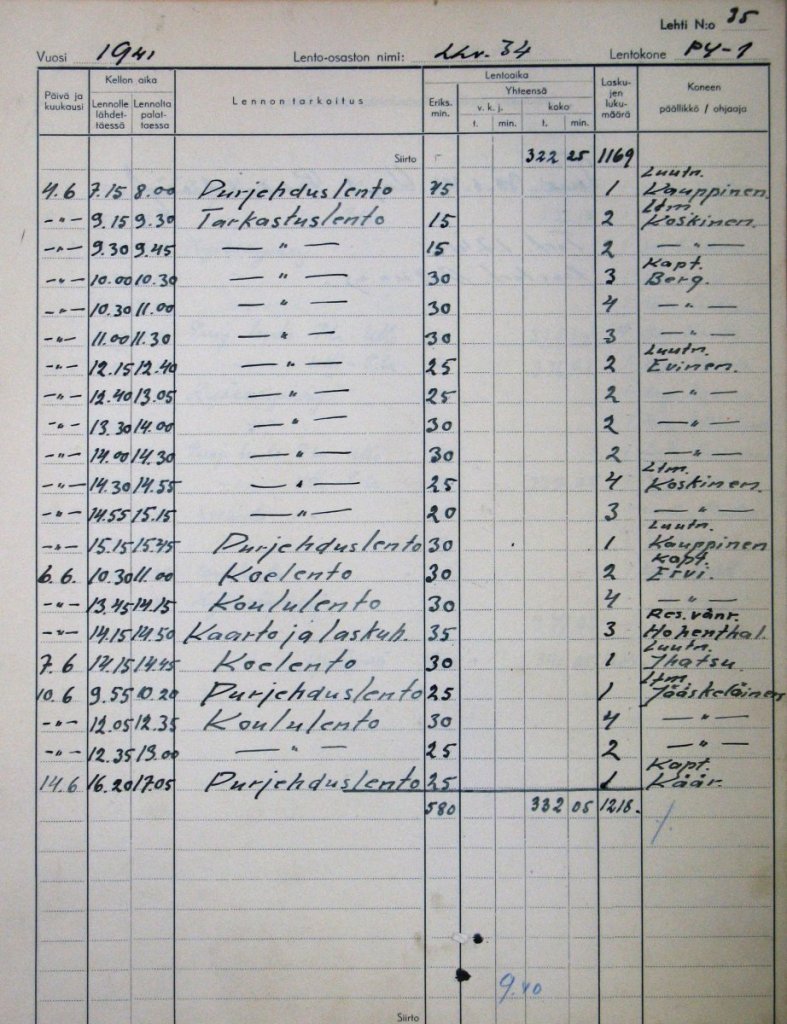 Lehti N:o 35
Vuosi 1941 Lento-osaston nimi: LLv. 34 Lentokone PY-1
Päivä ja kuukausi Kellon aika Lennolle lähdettäessä Lennolta palattaessa Lennon tarkoitus Lentoaika Eriks. min. Yhteensä v. k. j. t. min. koko t. min. Laskujen lukumäärä Koneen päällikkö / ohjaaja
Siirto 322 25 1169
4.6 7.15 8.00 Purjehduslento 45 1 Luutn. Kauppinen.
-"- 9.15 9.30 Tarkastuslento 15 2 Ltm. Koskinen.
-"- 9.30 9.45 -"- 15 2 -"-
-"- 10.00 10.30 -"- 30 3 Kapt. Berg.
-"- 10.30 11.00 -"- 30 4 -"-
-"- 11.00 11.30 -"- 30 3 -"-
-"- 12.15 12.40 -"- 25 2 Luutn. Evinen.
-"- 12.40 13.05 -"- 25 2 -"-
-"- 13.30 14.00 -"- 30 2 -"-
-"- 14.00 14.30 -"- 30 2 -"-
-"- 14.30 14.55 -"- 25 4 Ltm. Koskinen.
-"- 14.55 15.15 -"- 20 3 -"-
-"- 15.15 15.45 Purjehduslento 30 1 Luutn. Kauppinen
6.6. 10.30 11.00 Koelento 30 2 Kapt. Ervi.
-"- 13.45 14.15 Koululento 30 4 -"-
-"- 14.15 14.50 Kaarto ja laskuh. 35 3 Res. vänr. Hohenthal.
7.6 14.15 14.45 Koelento 30 1 Luutn. Ihatsu.
10.6 9.55 10.20 Purjehduslento 25 1 Ltm. Jääskeläinen
-"- 12.05 12.35 Koululento 30 4 -"-
-"- 12.35 13.00 -"- 25 2 -"-
14.6 16.20 17.05 Purjehduslento 25 1 Kapt. Käär.
580 332 05 1218.
9.40
Siirto